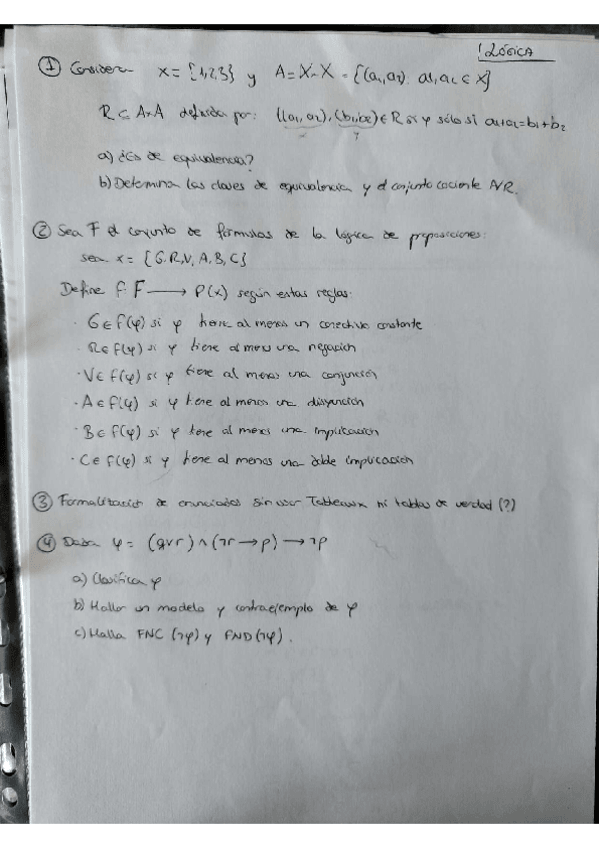 LÓGICA
① Considera X = {1,2,3} y A = X×X = {(a₁,a₂): a₁,a₂ ∈ X}
R ⊂ A×A definida por: ((a₁,a₂),(b₁,b₂)) ∈ R si y sólo si a₁+a₂=b₁+b₂
a) ¿Es de equivalencia?
b) Determina las clases de equivalencia y el conjunto cociente A/R.
② Sea F el conjunto de fórmulas de la lógica de proposiciones:
sea x = {G,R,V,A,B,C}
Define f: F ⟶ P(x) según estas reglas:
· G ∈ f(φ) si φ tiene al menos un conectivo constante
· R ∈ f(φ) si φ tiene al menos una negación
· V ∈ f(φ) si φ tiene al menos una conjunción
· A ∈ f(φ) si φ tiene al menos una disyunción
· B ∈ f(φ) si φ tiene al menos una implicación
· C ∈ f(φ) si φ tiene al menos una doble implicación
③ Formalización de enunciados sin usar Tableaux ni tablas de verdad (?)
④ Dada φ = (q∨r) ∧ (¬r → p) → ¬p
a) Clasifica φ
b) Hallar un modelo y contraejemplo de φ
c) Halla FNC (¬φ) y FND (¬φ).